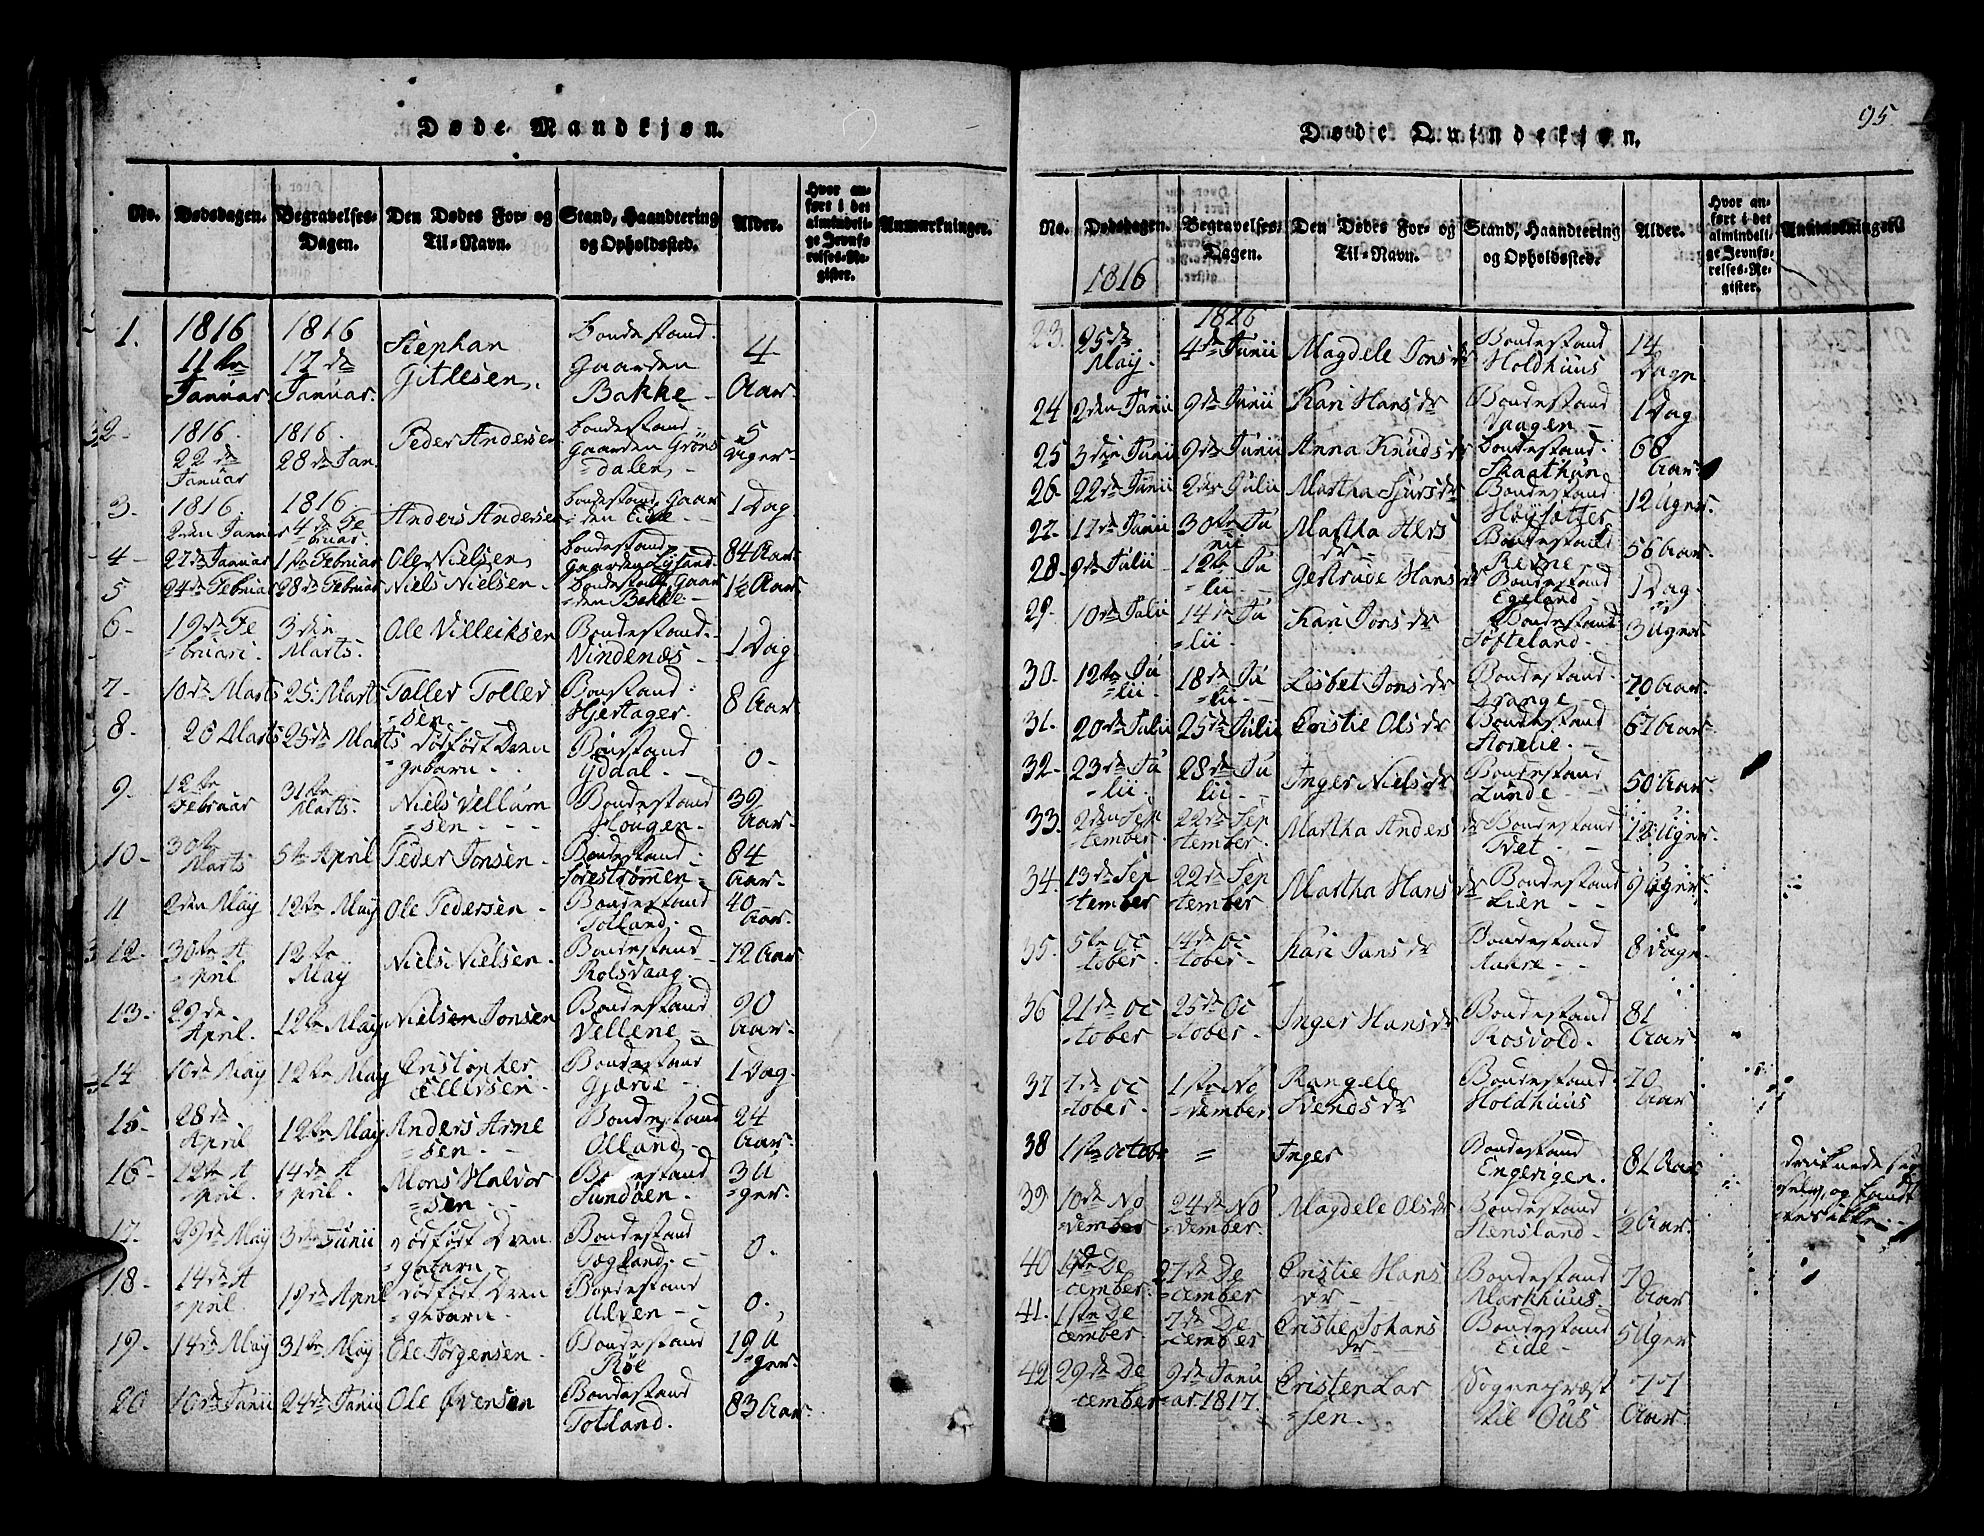 Døde Mandkjøn.
No.
Dødsdagen.
Begravelses-Dagen.
Den Dødes For- og Til-Navn.
Stand, Haandtering og Opholdssted.
Alder.
Hvor anført i det almindelige Jevnførelses-Register.
Anmærkninger.
1. 1816 11te Januar. 1816 17de Januar. Stephan Gitlesen. Bondestand. Gaarden Bakke 4 Aar.
2. 1816. 22de Januar 1816. 28de Jan. Peder Andersen Bondestand Gaarden Gröns=dalen 5 Uger.
3. 1816. 2den Januar 1816. 4de Februar Anders Andersen Bondestand Gaar=den Eide 1 Dag.
4 27de Januar 1ste Februar Ole Nielsen Bondestand Gaarden Lysand. 84 Aar
5 24de Februar 28de Februar Niels Nielsen Bondestand Gaar=den Bakke 1½ Aar
6 19de Fe=bruari. 3die Marts. Ole Villeiksen Bondestand. Vindenæs 1 Dag
7 10de Marts 25. Marts Toller Toller=sen Bonstand: Hjertager. 8 Aar
8. 20 Marts 25de Marts dödfödt Dren=gebarn. Bonstand Yddal. 0
9. 12te Februar 31te Marts. Niels Vellum=sen. Bondestand Hougen. 39 Aar.
10 30te Marts 5te April Peder Jonsen Bondestand. Sørestrømmen 84 Aar.
11 2den May 12te May Ole Pedersen Bondestand Totland. 40 Aar.
12. 30te A=pril 12te May Niels Nielsen. Bondestand Rolsvaag. 72 Aar
13. 29de April. 12te May Nielsen Jonsen Bondestand Vellene 90 Aar.
14 10de May 12te May Cristopher Ellersen. Bondestand Gjærde 1 Dag.
15. 28de April 12te May Anders Arne=sen. Bondestand Olland 24 Aar.
16 12te A=pril. 14de A=pril. Mons Halvor=sen Bondestand Sundöen. 3 U=ger.
17. 29de May 3die Junii dödfödt Dren=gebarn Bondestand Tægland. 0.
18 14de A=pril. 19de April dödfödt Dren=gebarn. Bondestand Alven 0.
19. 14de May 31te May Ole Jørgensen. Bondestand Röe 19 U=ger.
20 10de Junii 24de Junii Ole Øvensen Bondestand Totland. 83 Aar
95
Døde Quindekjøn.
No.
Dødsdagen.
1816
Begravelses-Dagen.
Den Dødes For- og Til-Navn.
Stand, Haandtering og Opholdssted.
Alder.
Hvor anført i det almindelige Jevnførelses-Register.
Anmærkninger.
23. 25de May. 1816 4de Junii Magdele Jonsdr Bondestand Holdhuus 14 Dage.
24 2den Junii 9de Junii Kari Hansdr Bondestand Vaagen 1 Dag
25 3die Junii 9de Junii Anna Knudsdr Bondestand. Skaathun 68 Aar
26. 22de Junii 2den Julii Martha Sjursdr Bondestand Høysætter 12 Uger.
27. 17de Junii 30te Junii Martha Hersdr Bondestand Revne 56 Aar
28. 9de Julii 12te Ju=lii. Gertrude Hansdr Bondestand Egeland 1 Dag.
29. 10de Julii 14de Ju=lii. Kari Jonsdr Bondestand Søfteland. 3 Uger
30. 12te Ju=lii. 18de Ju=lii. Lisbet Jonsdr Bondestand. Drange 70 Aar
31. 20de Julii 25de Julii Cristie Olsdr Bondestand Storelie. 67 Aar
32. 23de Ju=lii. 28de Ju=lii. Inger Nielsdr Bondestand Lunde 50 Aar.
33. 2den Sep=tember. 22de Sep=tember. Martha Andersdr Bondestand Tvet. 12 Uger.
34. 13de Sep=tember 22de Sep=tember Martha Hansdr Bondestand Lien 9 Uger
35. 5te Oc=tober. 14de Oc=tober. Kari Jansdr Bondestand Aakre 8 Dage.
36 21de Oc=tober 25de Oc=tober. Inger Hansdr Bondestand Rosvold. 81 Aar
37 7de Oc=tober. 1ste No=vember Rangele Svendsdr Bondestand. Holdhuus 70 Aar
38 1ste October = Inger Bondestand Engevigen. 81 Aar druknede sig selv, og fandtes ikke.
39. 10de No=vember 24de No=vember. Magdele Olsdr Bondestand Stensland. 2 Aar.
40 De=cember. 27de De=cember Cristie Hansdr Bondestand Markhuus. 70 Aar
41. 1ste De=cember 7de De=cember Cristie Johansdr Bondestand Eide 5 Uger
42 29de De=cember 9de Janu=ar. 1817. Cristen Lar=sen. Sognepræst til Ous 77 Aar